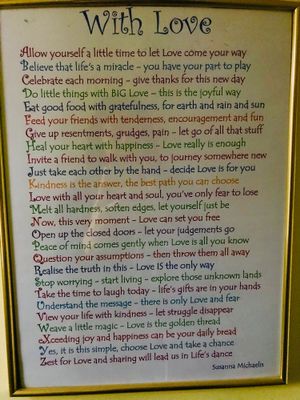 With Love
Allow yourself a little time to let Love come your way
Believe that life's a miracle - you have your part to play
Celebrate each morning - give thanks for this new day
Do little things with BIG Love - this is the joyful way
Eat good food with gratefulness, for earth and rain and sun
Feed your friends with tenderness, encouragement and fun
Give up resentments, grudges, pain - let go of all that stuff
Heal your heart with happiness - Love really is enough
Invite a friend to walk with you, to journey somewhere new
Just take each other by the hand - decide Love is for you
Kindness is the answer, the best path you can choose
Love with all your heart and soul, you've only fear to lose
Melt all hardness, soften edges, let yourself just be
Now, this very moment - Love can set you free
Open up the closed doors - let your judgements go
Peace of mind comes gently when Love is all you know
Question your assumptions - then throw them all away
Realise the truth in this - Love IS the only way
Stop worrying - start living - explore those unknown lands
Take the time to laugh today - life's gifts are in your hands
Understand the message - there is only Love and fear
View your life with kindness - let struggle disappear
Weave a little magic - Love is the golden thread
eXceeding joy and happiness can be your daily bread
Yes, it is this simple, choose Love and take a chance
Zest for Love and sharing will lead us in Life's dance
Susanna Michaelis